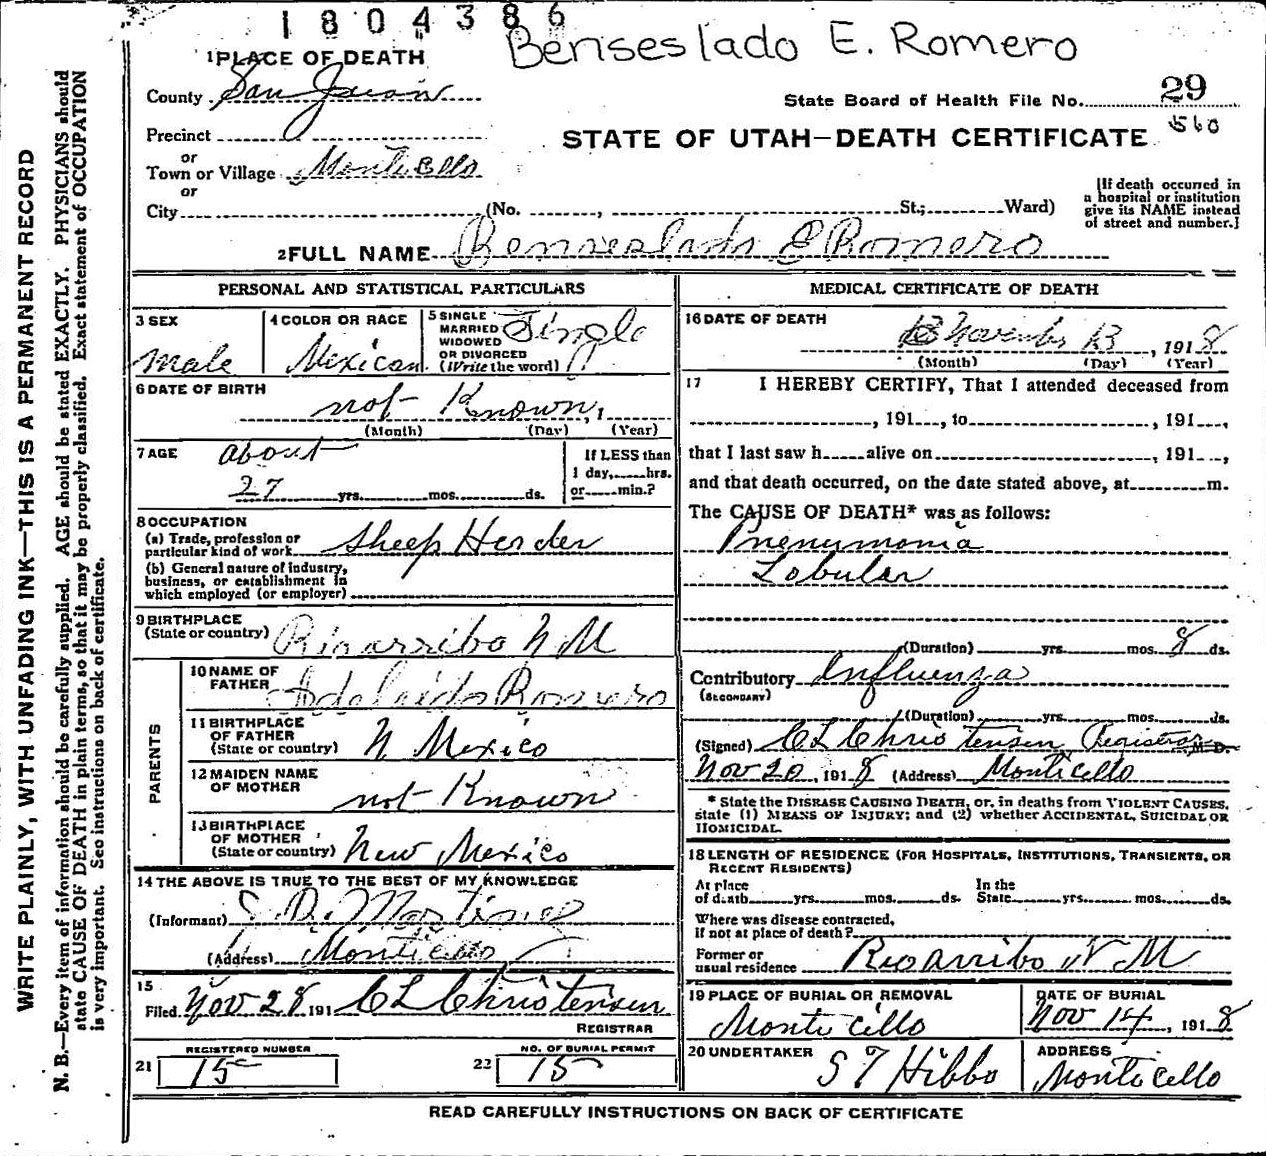 1804386
Benseslado E. Romero
1 PLACE OF DEATH
County San Juan
State Board of Health File No. 29
560
Precinct
or
Town or Village Monticello
STATE OF UTAH—DEATH CERTIFICATE
or
City (No. , St.; Ward)
[If death occured in
a hospital or institution
give its NAME instead
of street and number.]
2 FULL NAME Benseslado E Romero
PERSONAL AND STATISTICAL PARTICULARS
3 SEX
male
4 COLOR OR RACE
Mexican
5 SINGLE
MARRIED
WIDOWED
OR DIVORCED
(Write the word)
Single
6 DATE OF BIRTH
not Known, 1
(Month) (Day) (Year)
7 AGE about
27 yrs. mos. ds.
If LESS than
1 day, hrs.
or min.?
8 OCCUPATION
(a) Trade, profession or
particular kind of work Sheep Herder
(b) General nature of industry,
business, or establishment in
which employed (or employer)
9 BIRTHPLACE
(State or country) Rioarribo N M
PARENTS
10 NAME OF
FATHER Adelaido Romero
11 BIRTHPLACE
OF FATHER
(State or country) N Mexico
12 MAIDEN NAME
OF MOTHER not Known
13 BIRTHPLACE
OF MOTHER
(State or country) New Mexico
14 THE ABOVE IS TRUE TO THE BEST OF MY KNOWLEDGE
(Informant) J. D. Martinez
(Address) Monticello
15
Filed Nov 28 191 CL Christensen
REGISTRAR
REGISTERED NUMBER
21 15
NO. OF BURIAL PERMIT
22 15
MEDICAL CERTIFICATE OF DEATH
16 DATE OF DEATH
November 13, 1918
(Month) (Day) (Year)
17 I HEREBY CERTIFY, That I attended deceased from
, 191 , to , 191 ,
that I last saw h alive on , 191 ,
and that death occurred, on the date stated above, at m.
The CAUSE OF DEATH* was as follows:
Pnenumonia
Lobular
(Duration) yrs. mos. 8 ds.
Contributory Influenza
(SECONDARY)
(Duration) yrs. mos. ds.
(Signed) CL Christensen Registrar M. D.
Nov 20, 1918 (Address) Monticello
* State the DISEASE CAUSING DEATH, or, in deaths from VIOLENT CAUSES,
state (1) MEANS OF INJURY; and (2) whether ACCIDENTAL, SUICIDAL OR
HOMICIDAL.
18 LENGTH OF RESIDENCE (FOR HOSPITALS, INSTITUTIONS, TRANSIENTS, OR
RECENT RESIDENTS)
At place
of death yrs. mos. ds.
In the
State yrs. mos. ds.
Where was disease contracted,
if not at place of death?
Former or
usual residence Rioarribo N M
19 PLACE OF BURIAL OR REMOVAL
Monticello
DATE OF BURIAL
Nov 14, 1918
20 UNDERTAKER
S T Hibbo
ADDRESS
Monticello
READ CAREFULLY INSTRUCTIONS ON BACK OF CERTIFICATE
WRITE PLAINLY, WITH UNFADING INK—THIS IS A PERMANENT RECORD
N. B.—Every item of information should be carefully supplied. AGE should be stated EXACTLY. PHYSICIANS should
state CAUSE OF DEATH in plain terms, so that it may be properly classified. Exact statement of OCCUPATION
is very important. See instructions on back of certificate.